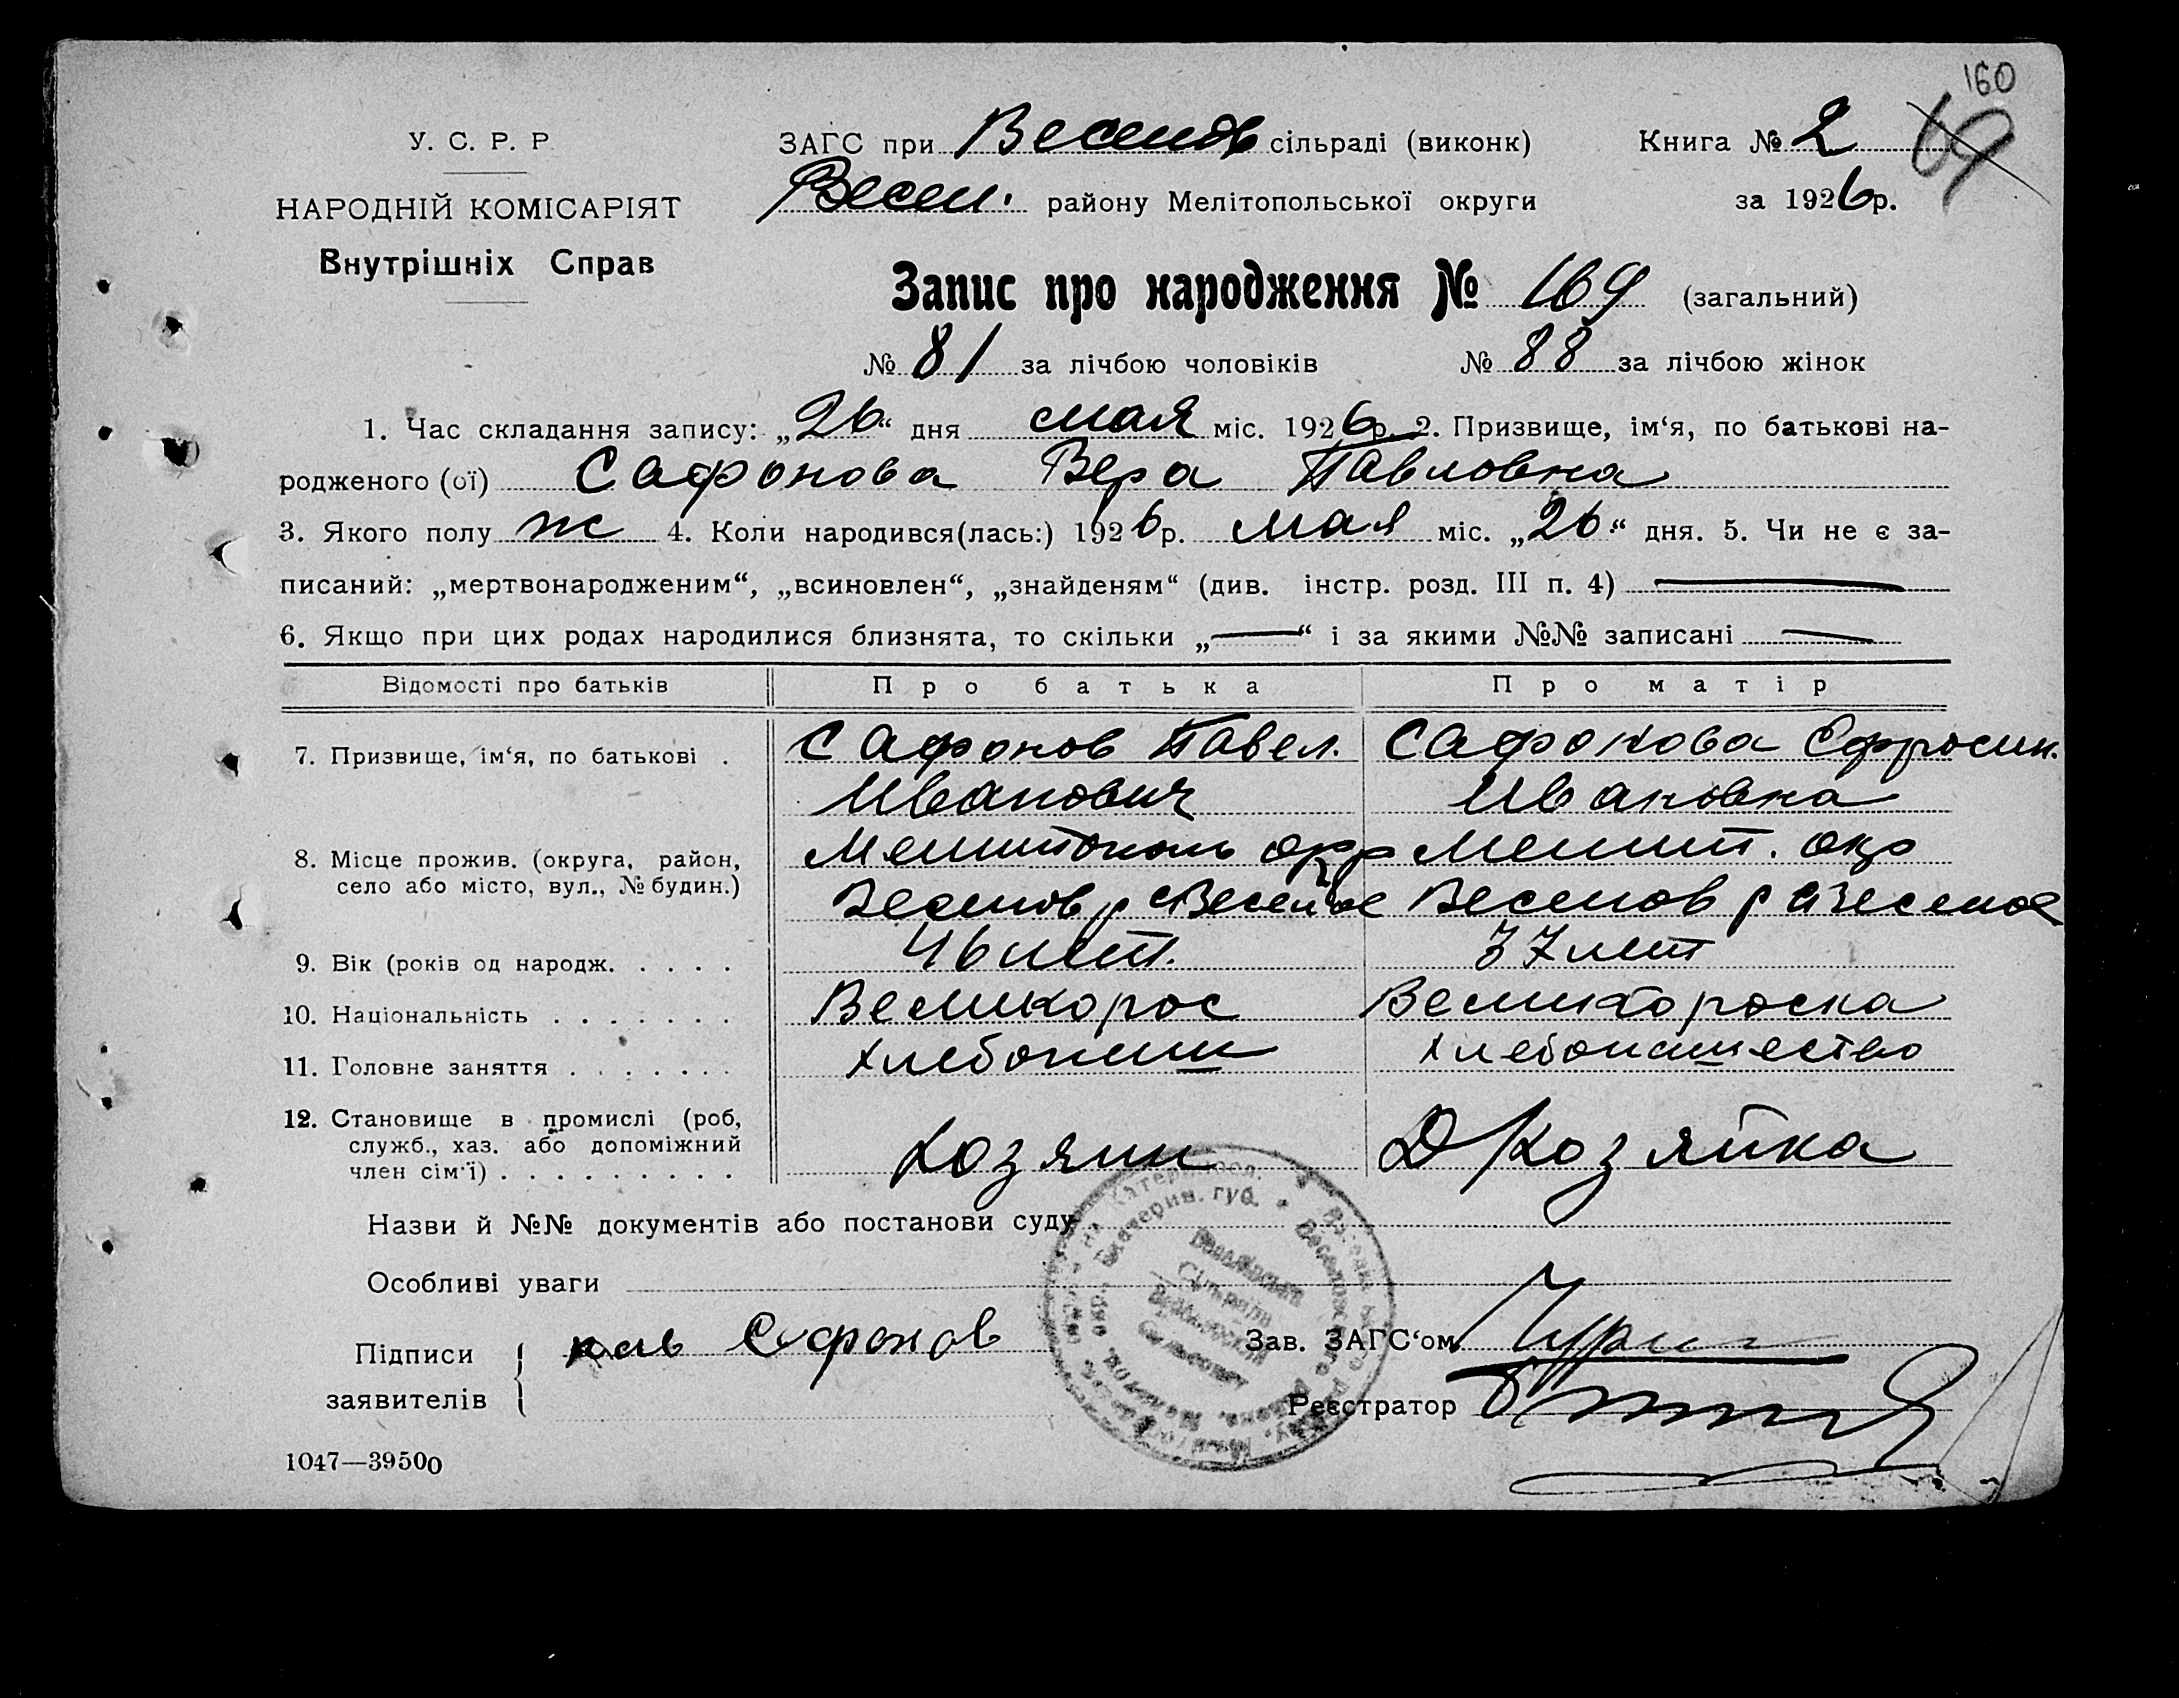 160
У. С. Р. Р
ЗАГС при Веселов сільраді (виконк) Книга № 2 69
НАРОДНІЙ КОМІСАРІЯТ
Весел. району Мелітопольської округи за 1926р.
Внутрішніх Справ
Запис про народження № 169 (загальний)
№ 81 за лічбою чоловіків № 88 за лічбою жінок
1. Час складання запису: „26“ дня мая міс. 1926р. 2. Призвище, ім‘я, по батькові на-
родженого (ої) Сафонова Вера Павловна
3. Якого полу ж 4. Коли народився(лась:) 1926р. мая міс. „26“ дня. 5. Чи не є за-
писаний: „мертвонародженим“, „всиновлен“, „знайденям“ (див. інстр. розд. III п. 4) —
6. Якщо при цих родах народилися близнята, то скільки „—“ і за якими №№ записані —
Відомості про батьків Про батька Про матір
7. Призвище, ім‘я, по батькові . Сафонов Павел. Сафонова Ефросин.
Иванович Ивановна
8. Місце прожив. (округа, район, Мелитополь окр Мелит. окр
село або місто, вул., № будин.) Веселов р с Веселое Веселов р с Веселое
9. Вік (років од народж. . . . . 46 лет. 37 лет
10. Національність . . . . . . . Великорос Великороска
11. Головне заняття . . . . . . . Хлебопаш Хлебопашество
12. Становище в промислі (роб,
служб., хаз. або допоміжний Хозяин Д Хозяйка
член сім‘ї) . . . . . . . . .
Назви й №№ документів або постанови суду
Особливі уваги
Підписи Сафонов Зав. ЗАГС‘ом
заявителів Реєстратор
1047—39500